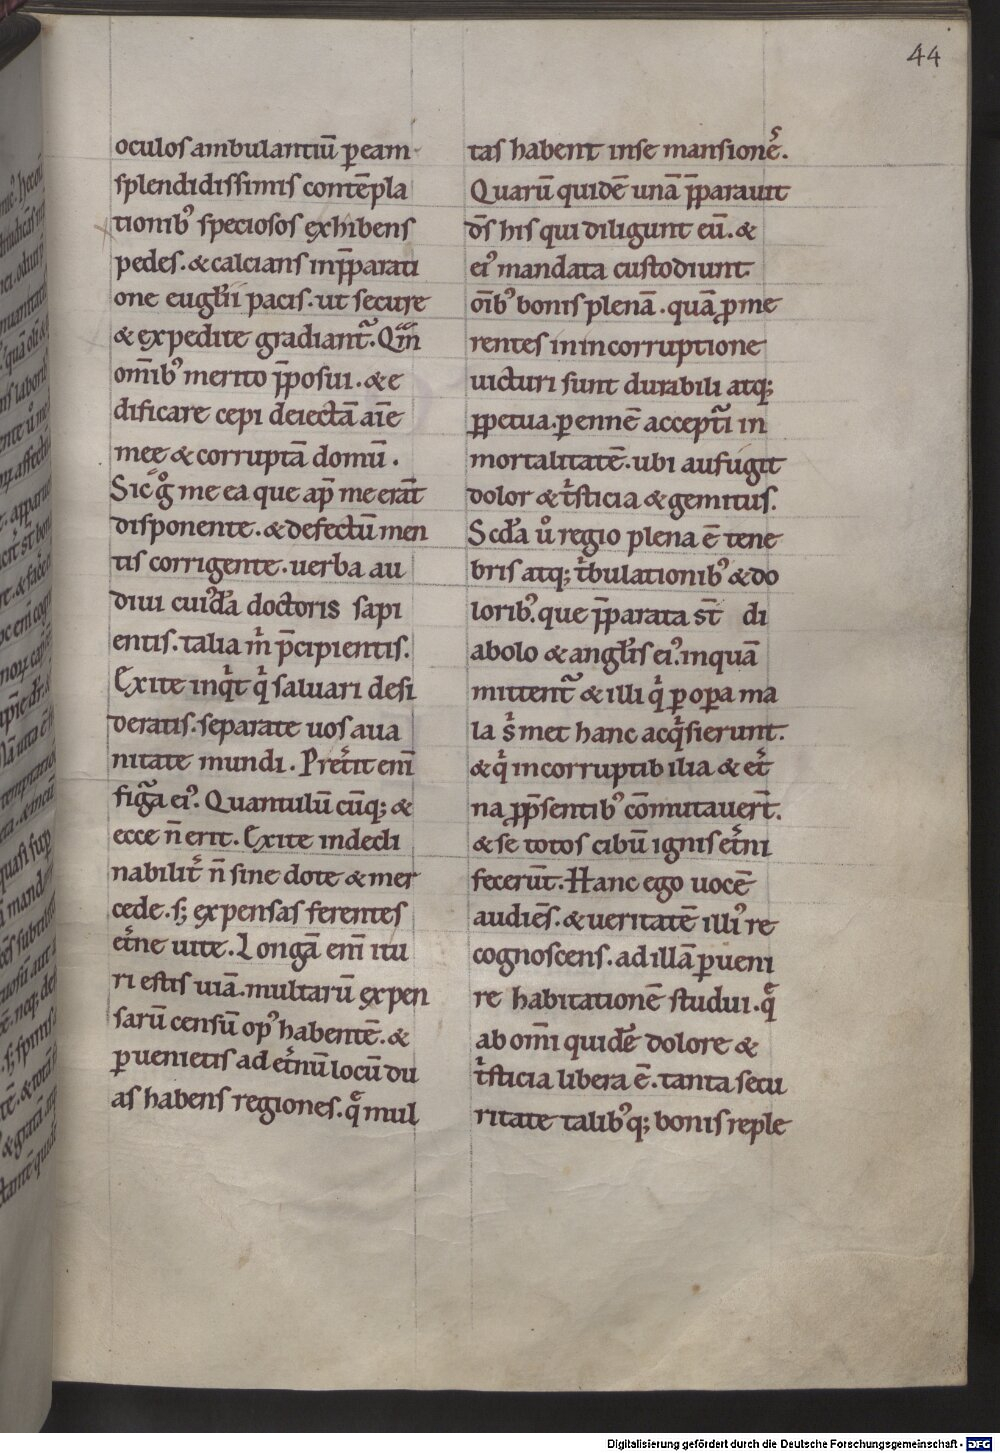 44
oculos ambulantiū ꝑ eam
splendidissimis contēpla
tionibꝰ speciosos exhibens
pedes. & calcians inp̄parati
one eugl̄ii pacis. ut secure
& expedite gradiant᷑. Qm̄
om̄ibꝰ merito p̄posui. & e
dificare cepi deiectā aīe
mee & corruptā domū.
Sic gͦ me ea que ap̄ me erāt
disponente. & defectū men
tis corrigente. uerba au
diui cuid̄a doctoris sapi
entis. talia m̍ p̄cipientis.
Exite inqͥt qͥ saluari desi
deratis. separate uos a ua
nitate mundi. Pret̍it enī
figᷓa eiꝰ. Quantulū cūq; &
ecce n̄ erit. Exite indecli
nabilit̍ n̄ sine dote & mer
cede. s; expensas ferentes
et̍ne uite. Longā enī itu
ri estis uiā. multarū expen
sarū censū opꝰ habentē. &
ꝑuenietis ad et̍nū locū du
as habens regiones. q̄ mul
tas habent in se mansionēs.
Quarū quidē unā p̄parauit
ds̄ his qui diligunt eū. &
eiꝰ mandata custodiunt
oībꝰ bonis plenā. quā ꝓme
rentes in incorruptione
uicturi sunt durabili atq;
ꝑpetua. ꝑennē acceptᷓi in
mortalitatē. ubi aufugit
dolor & tͥsticia & gemitus.
Scd̄a uͦ regio plena ē tene
bris atq; tͥbulationibꝰ & do
loribꝰ. que p̄parata st̄ di
abolo & angl̄is eiꝰ. in quā
mittent᷑ & illi qͥ ꝑ oꝑa ma
la s̍met hanc acqͥsierunt.
& qͥ incorruptibilia & et̍
na ꝓ p̄sentibꝰ cōmutauert̄.
& se totos cibū ignis et̍ni
fecerūt. Hanc ego uocē
audiēs. & ueritatē illiꝰ re
cognoscens. ad illā ꝑueni
re habitationē studui. q̄
ab om̄i quid̄e dolore &
tͥsticia libera ē. tanta secu
ritate talibꝰq; bonis reple
Digitalisierung gefördert durch die Deutsche Forschungsgemeinschaft - DFG